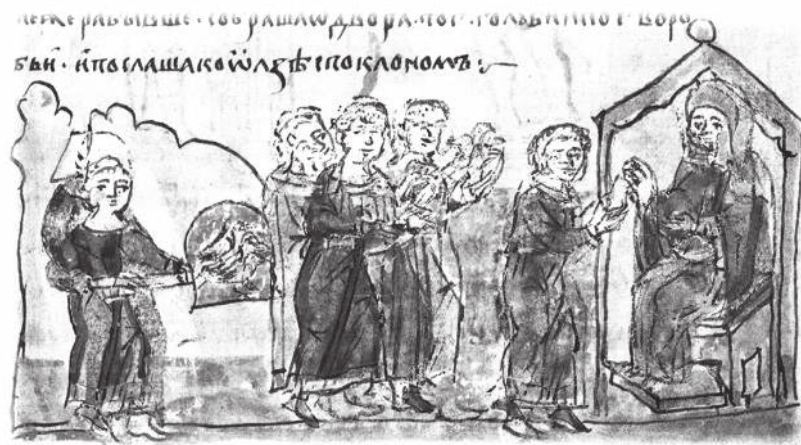 же ради бывше · собраша ѿ двора · по г · голꙋби и по г воро
бьи · и послаша ко ѡлзѣ с поклономъ :~